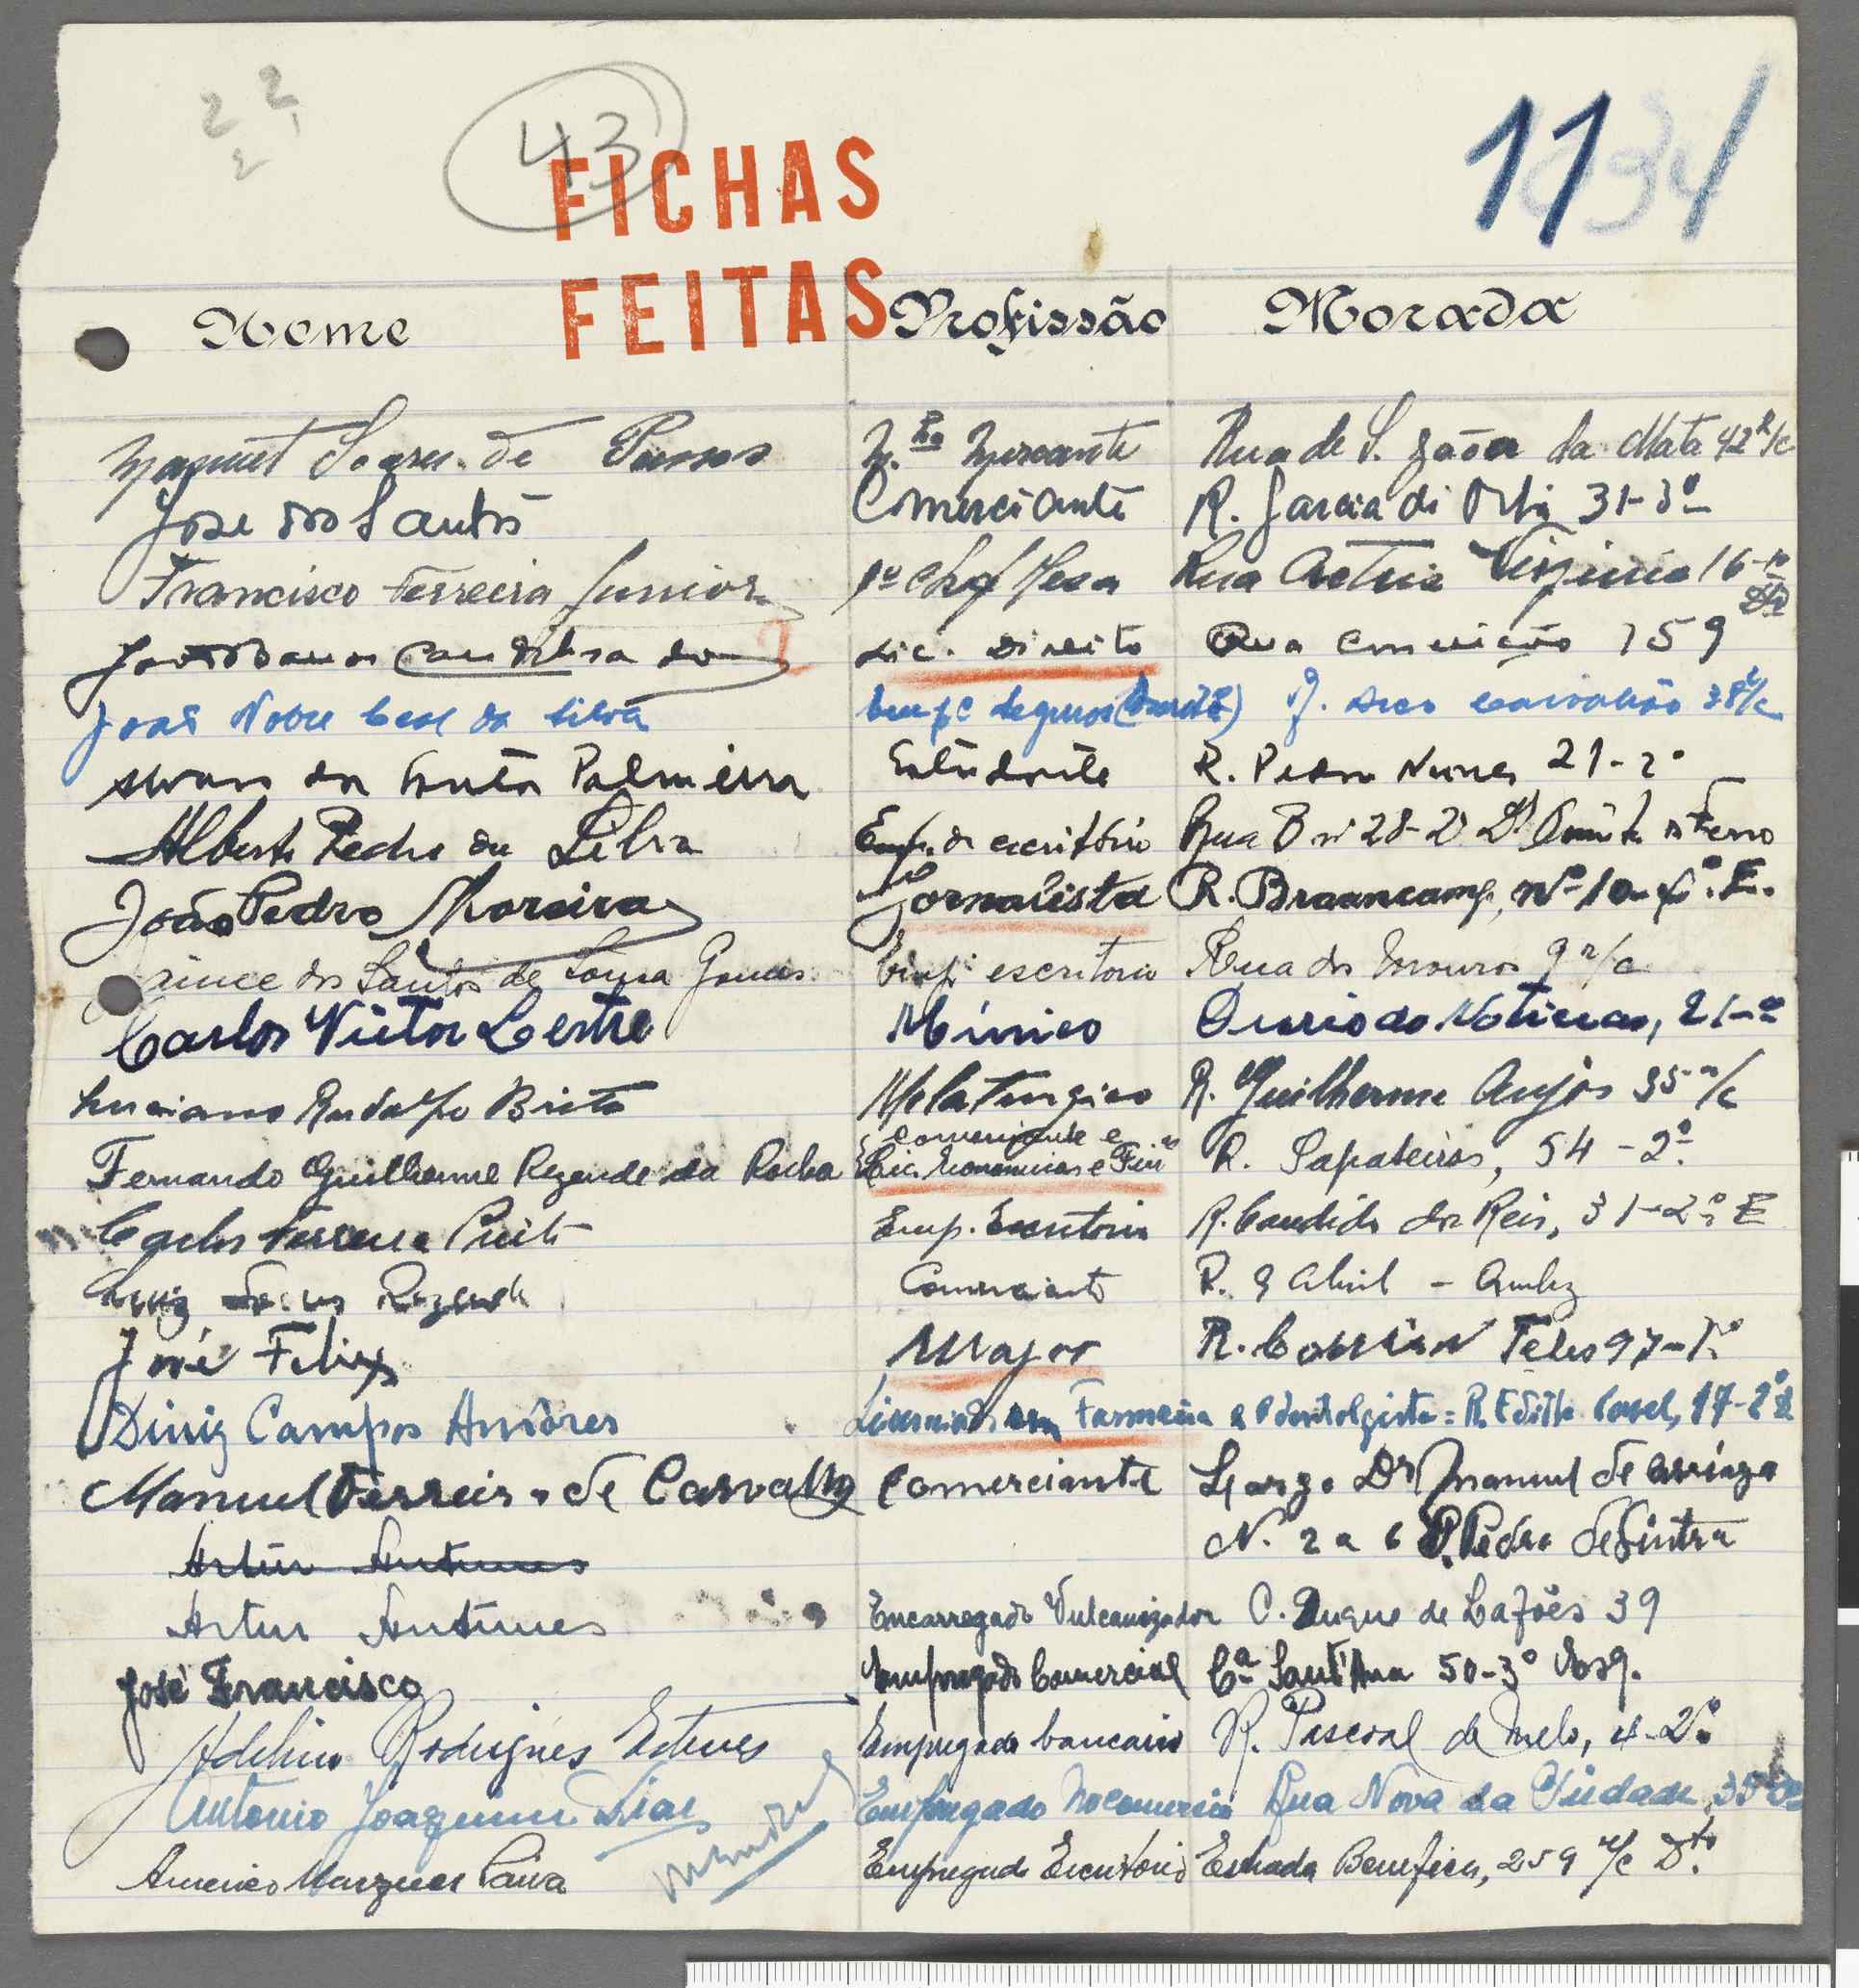 2 2
2
43
11
34
FICHAS
FEITAS
Nome Profissão Morada
Soares de Passos M. Mercante Rua de S. João da Mata 42 R/c
José dos Santos Comerciante R. Garcia de Orta 31-3º
Francisco Ferreira Junior 1º Mesa Rua Actriz Virginia 16
2 Lic. Direito Rua Conceição 159
João Nobre da Silva Seguros
da Palmeira Estudante R. Pedro Nunes 21-2º
Alberto Pedro da Silva Emp. de escritório Rua
João Pedro Moreira Jornalista R. Braancamp, nº 10-4º. E.
dos Santos de Sousa Gomes Emp. escritorio Rua dos Mouros 9 r/c
Carlos Victor Lestre Mímico Diario de Noticias, 21
Luciano Rudolfo Brito Metalurgico R. Guilherme Anjos 35 r/c
Fernando Guilherme Rezende da Rocha Comerciante e Lic. Economicas e Fin. R. Sapateiros, 54-2º.
Carlos Ferreira Emp. Escritorio R. Candido dos Reis, 31-2º E
Luiz Rezende Comerciante R. 9 Abril -
José Felix Major R. Teles 97-1º
Diniz Campos Andores Licenciado em Farmacia e Odontolgista = R. Edith Cavel, 17-2º
Manuel Ferreira de Carvalho Comerciante Largo Dr Manuel de Arriaga
N. 2 a 6 S. Pedro de Sintra
Artur Antunes
Artur Antunes Encarregado Vulcanizador C. Duque de Lafões 39
José Francisco Empregado Comercial Cª Sant'Ana 50-3º Esq.
Adelino Rodrigues Esteves Empregado bancario R. Pascoal de Melo, 4-2º
Antonio Joaquim Dias Empregado no comercio Rua Nova da Piedade, 35
Americo Marques Paiva Empregado Escritorio Estrada Benfica, 259 r/c Dto.